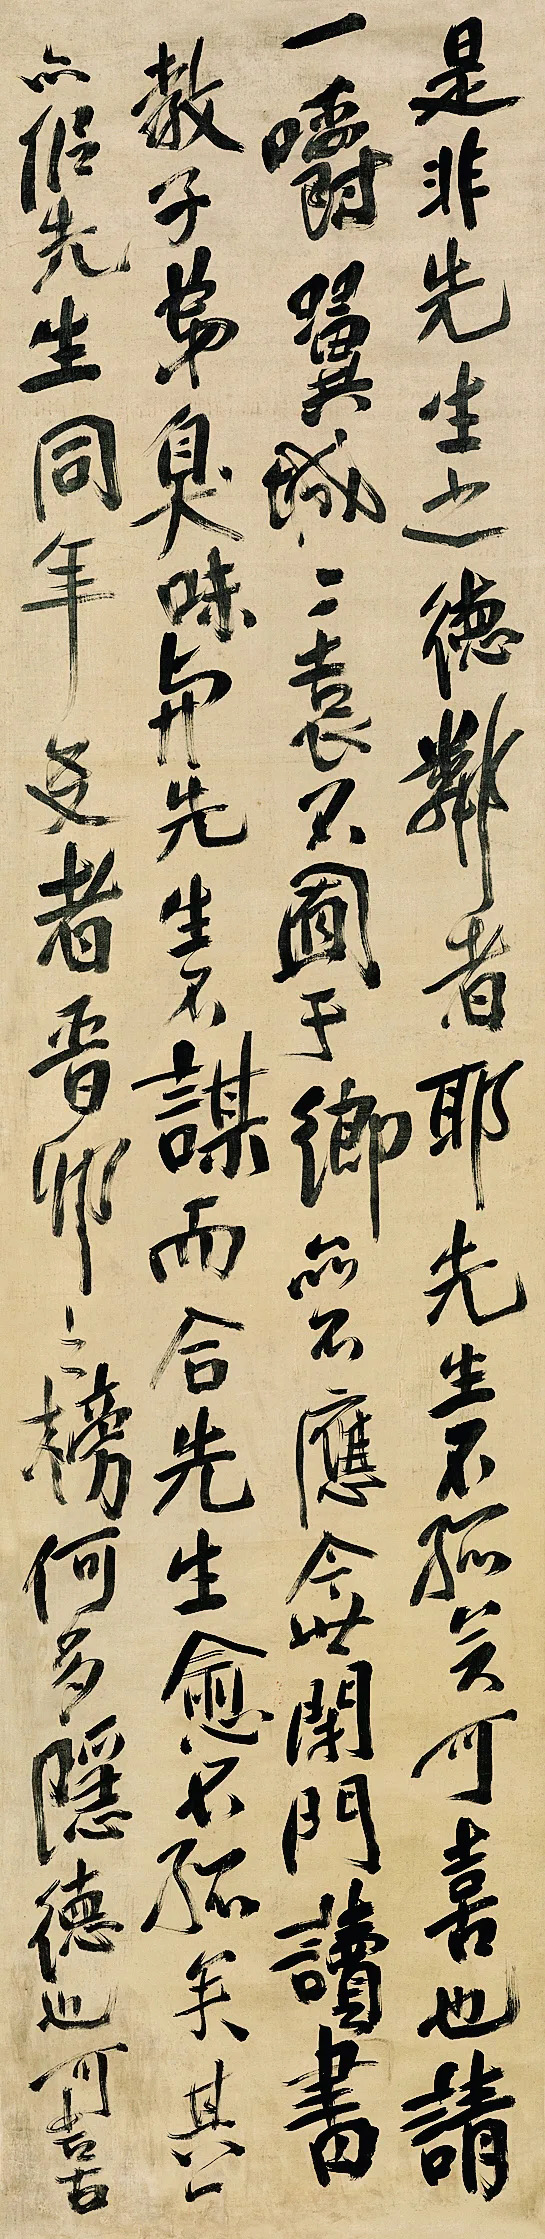 是非先生之德鄰者耶先生不孤矣可喜也請
一嚼翼城二袁不圄于鄉亦不應今世閑門讀書
教子弟臭味與先生不謀而合先生愈不孤矣其一
亦侶先生同年友者晉卯之榜何多隱德也可喜